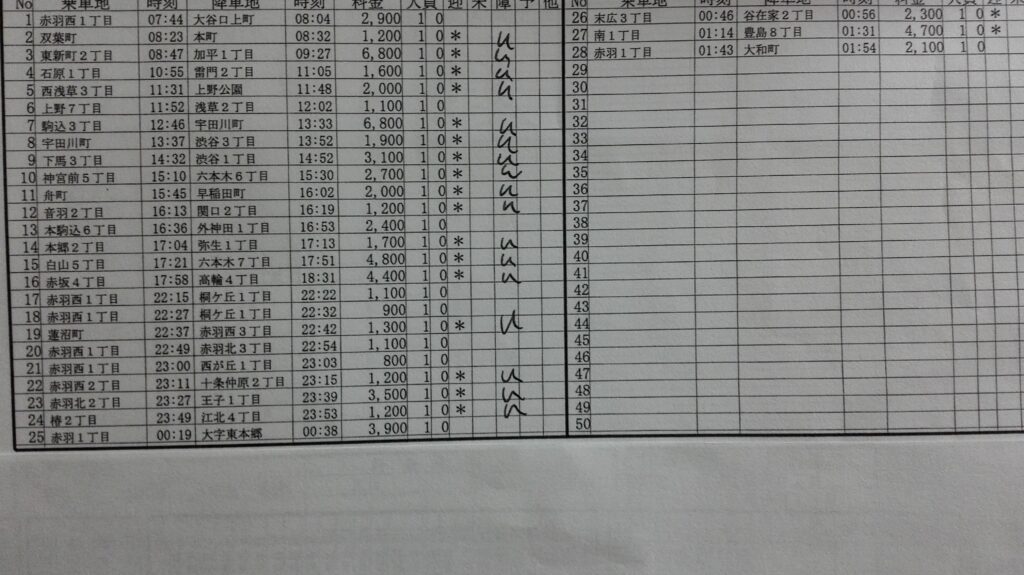 No 乗車地 時刻 降車地 時刻 料金 人員 迎 未 障 予 他
1 赤羽西1丁目 07:44 大谷口上町 08:04 2,900 1 0
2 双葉町 08:23 本町 08:32 1,200 1 0 *
3 東新町2丁目 08:47 加平1丁目 09:27 6,800 1 0 *
4 石原1丁目 10:55 雷門2丁目 11:05 1,600 1 0 *
5 西浅草3丁目 11:31 上野公園 11:48 2,000 1 0 *
6 上野7丁目 11:52 浅草2丁目 12:02 1,100 1 0
7 駒込3丁目 12:46 宇田川町 13:33 6,800 1 0 *
8 宇田川町 13:37 渋谷3丁目 13:52 1,900 1 0 *
9 下馬3丁目 14:32 渋谷1丁目 14:52 3,100 1 0 *
10 神宮前5丁目 15:10 六本木6丁目 15:30 2,700 1 0 *
11 舟町 15:45 早稲田町 16:02 2,000 1 0 *
12 音羽2丁目 16:13 関口2丁目 16:19 1,200 1 0 *
13 本駒込6丁目 16:36 外神田1丁目 16:53 2,400 1 0
14 本郷2丁目 17:04 弥生1丁目 17:13 1,700 1 0 *
15 白山5丁目 17:21 六本木7丁目 17:51 4,800 1 0 *
16 赤坂4丁目 17:58 高輪4丁目 18:31 4,400 1 0 *
17 赤羽西1丁目 22:15 桐ケ丘1丁目 22:22 1,100 1 0
18 赤羽西1丁目 22:27 桐ケ丘1丁目 22:32 900 1 0
19 蓮沼町 22:37 赤羽西3丁目 22:42 1,300 1 0 *
20 赤羽西1丁目 22:49 赤羽北3丁目 22:54 1,100 1 0
21 赤羽西1丁目 23:00 西が丘1丁目 23:03 800 1 0
22 赤羽西2丁目 23:11 十条仲原2丁目 23:15 1,200 1 0 *
23 赤羽北2丁目 23:27 王子1丁目 23:39 3,500 1 0 *
24 椿2丁目 23:49 江北4丁目 23:53 1,200 1 0 *
25 赤羽1丁目 00:19 大字東本郷 00:38 3,900 1 0
No 乗車地 時刻 降車地 時刻 料金 人員 迎 未
26 末広3丁目 00:46 谷在家2丁目 00:56 2,300 1 0 *
27 南1丁目 01:14 豊島8丁目 01:31 4,700 1 0 *
28 赤羽1丁目 01:43 大和町 01:54 2,100 1 0
29
30
31
32
33
34
35
36
37
38
39
40
41
42
43
44
45
46
47
48
49
50